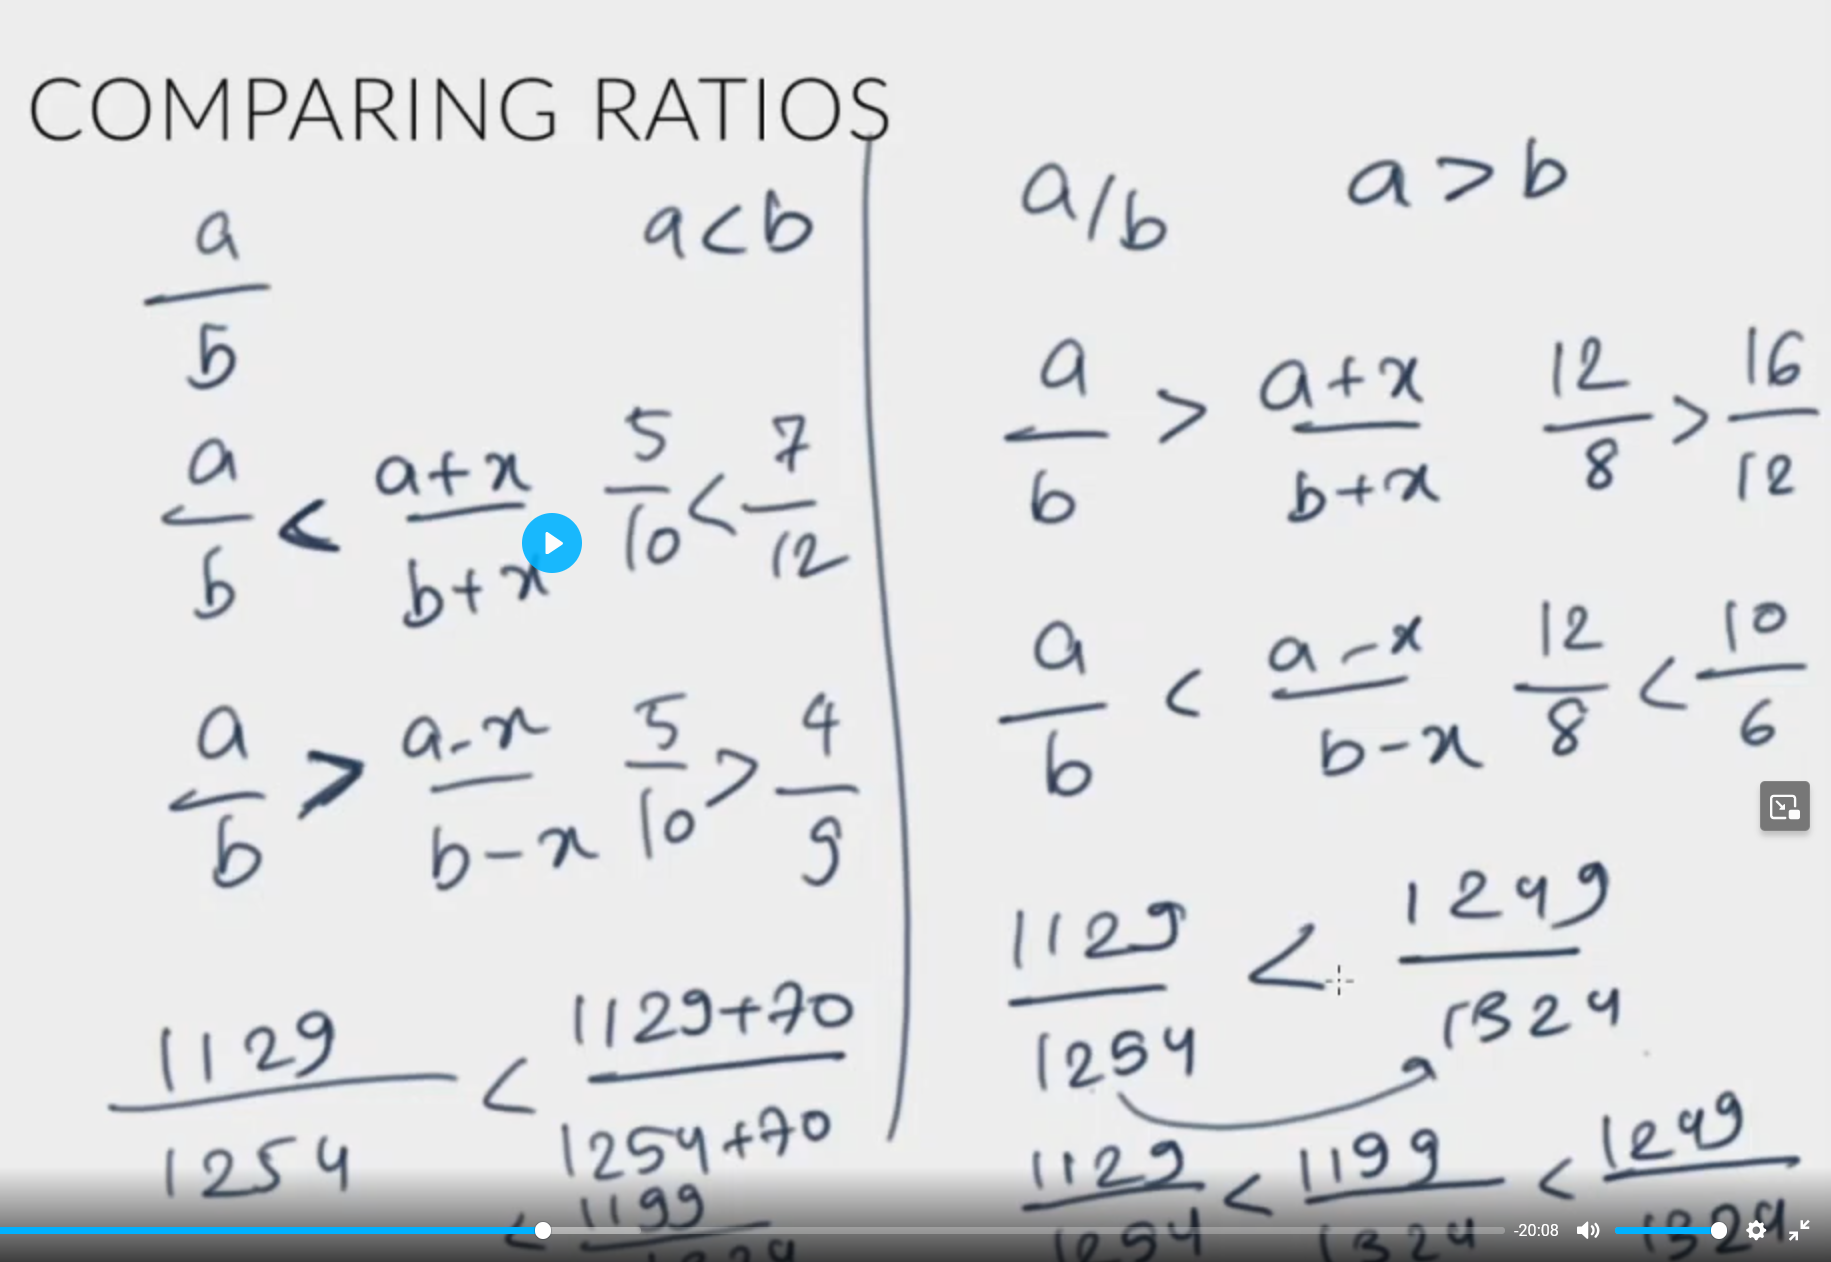 COMPARING RATIOS
a/b a<b
a/b < a+x/b+x 5/10 < 7/12
a/b > a-x/b-x 5/10 > 4/9
1129/1254 < 1129+70/1254+70
< 1199/1324
a/b a>b
a/b > a+x/b+x 12/8 > 16/12
a/b < a-x/b-x 12/8 < 10/6
1129/1254 < 1249/1324
1129/1254 < 1199/1324 < 1249/1324
-20:08